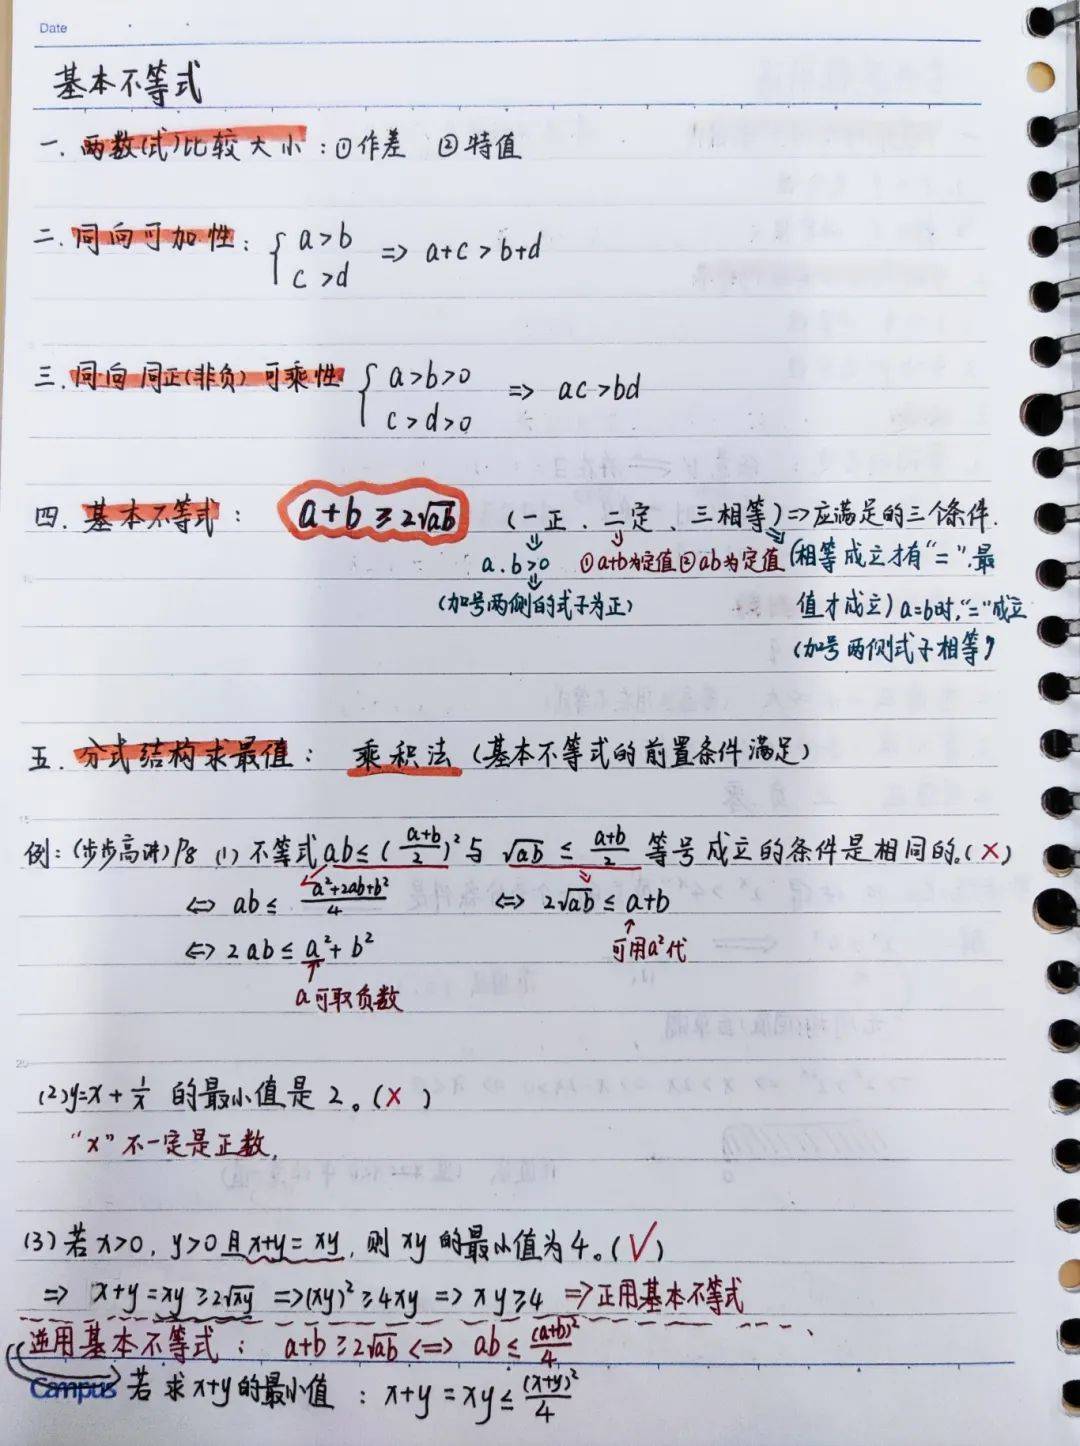 Date
基本不等式
一. 两数(式)比较大小：①作差 ②特值
二. 同向可加性： { a>b c>d => a+c>b+d
三. 同向同正(非负)可乘性 { a>b>0 c>d>0 => ac>bd
四. 基本不等式： a+b≥2√ab (一正、二定、三相等)=>应满足的三个条件.
a.b>0 ①a+b为定值②ab为定值 (相等成立才有“=”.最
(加号两侧的式子为正) 值才成立) a=b时,“=”成立
(加号两侧式子相等)
五. 分式结构求最值： 乘积法 (基本不等式的前置条件满足)
例：(步步高讲)P8 (1) 不等式ab≤(a+b/2)²与 √ab ≤ a+b/2 等号成立的条件是相同的.(×)
<=> ab≤ a²+2ab+b²/4 <=> 2√ab≤a+b
<=> 2ab≤a²+b² 可用a²代
a可取负数
(2)y=x+1/x 的最小值是2。(×)
“x”不一定是正数,
(3)若x>0, y>0且x+y=xy, 则xy的最小值为4。(√)
=> x+y=xy≥2√xy =>(xy)²≥4xy => xy≥4 =>正用基本不等式
逆用基本不等式： a+b≥2√ab <=> ab≤(a+b)²/4
Campus 若求x+y的最小值：x+y=xy≤(x+y)²/4